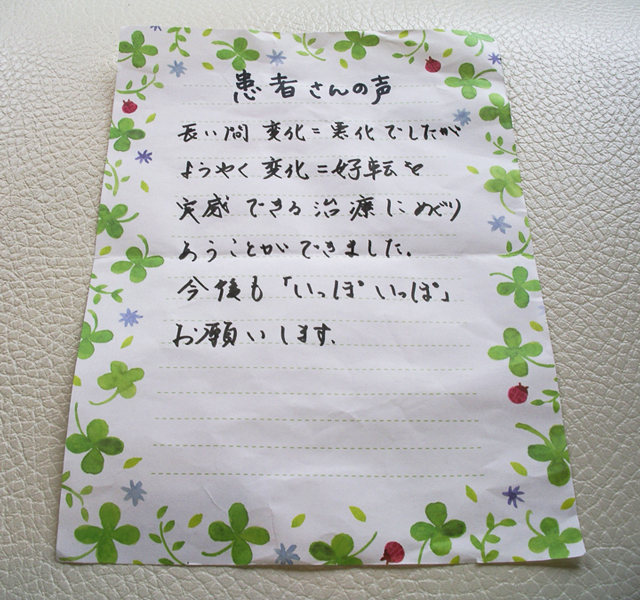 患者さんの声
長い間 変化=悪化でしたが
ようやく変化=好転を
実感できる治療にめぐり
あうことができました。
今後も「いっぽいっぽ」
お願いします。